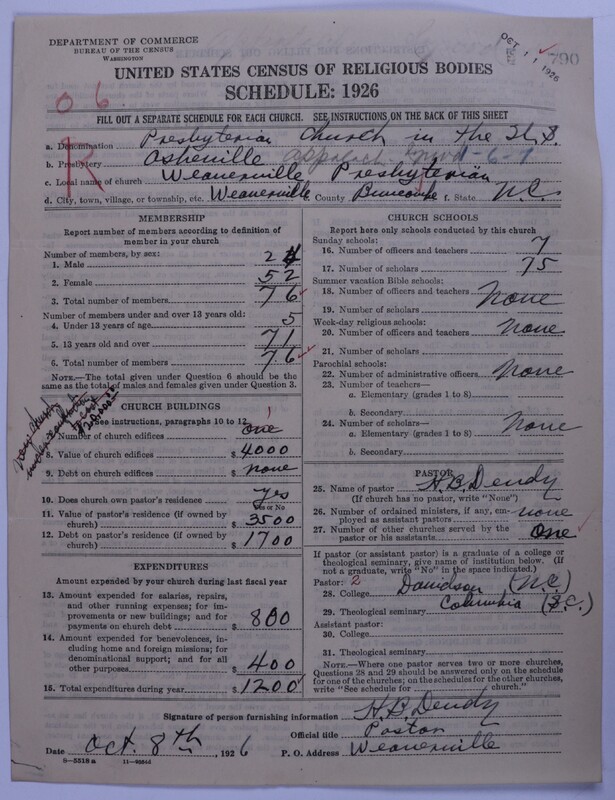 DEPARTMENT OF COMMERCE
BUREAU OF THE CENSUS
WASHINGTON
OCT 11 1926
790
UNITED STATES CENSUS OF RELIGIOUS BODIES
SCHEDULE: 1926
06
FILL OUT A SEPARATE SCHEDULE FOR EACH CHURCH. SEE INSTRUCTIONS ON THE BACK OF THIS SHEET
a. Denomination Presbyterian Church in the U.S.
b. Presbytery Asheville
c. Local name of church Weaverville Presbyterian
d. City, town, village, or township, etc. Weaverville County Buncombe f. State N.C.
MEMBERSHIP
Report number of members according to definition of member in your church
Number of members, by sex:
1. Male 24
2. Female 52
3. Total number of members 76
Number of members under and over 13 years old:
4. Under 13 years of age 5
5. 13 years old and over 71
6. Total number of members 76
NOTE.—The total given under Question 6 should be the same as the total of males and females given under Question 3.
CHURCH BUILDINGS
See instructions, paragraphs 10 to 12
new church
under
cost
20,000.00
7. Number of church edifices one 1
8. Value of church edifices $ 4000
9. Debt on church edifices $ none
10. Does church own pastor's residence? yes
Yes or No
11. Value of pastor's residence (if owned by church) $ 3500
12. Debt on pastor's residence (if owned by church) $ 1700
EXPENDITURES
Amount expended by your church during last fiscal year
13. Amount expended for salaries, repairs, and other running expenses; for improvements or new buildings; and for payments on church debt $ 800
14. Amount expended for benevolences, including home and foreign missions; for denominational support; and for all other purposes $ 400
15. Total expenditures during year $ 1200
CHURCH SCHOOLS
Report here only schools conducted by this church
Sunday schools:
16. Number of officers and teachers 7
17. Number of scholars 75
Summer vacation Bible schools:
18. Number of officers and teachers none
19. Number of scholars
Week-day religious schools:
20. Number of officers and teachers none
21. Number of scholars
Parochial schools:
22. Number of administrative officers none
23. Number of teachers—
a. Elementary (grades 1 to 8)
b. Secondary
24. Number of scholars—
a. Elementary (grades 1 to 8) none
b. Secondary
PASTOR
25. Name of pastor H.B. Dendy
(If church has no pastor, write "None")
26. Number of ordained ministers, if any, employed as assistant pastors none
27. Number of other churches served by the pastor or his assistants one
If pastor (or assistant pastor) is a graduate of a college or theological seminary, give name of institution below. (If not a graduate, write "No" in the space indicated.)
Pastor: 2
28. College Davidson (N.C.)
29. Theological seminary Columbia (S.C.)
Assistant pastor:
30. College
31. Theological seminary
NOTE.—Where one pastor serves two or more churches, Questions 28 and 29 should be answered only on the schedule for one of the churches; on the schedules for the other churches, write "See schedule for church."
Signature of person furnishing information H.B. Dendy
Official title Pastor
Date Oct. 8th, 1926 P. O. Address Weaverville
8—5518 a